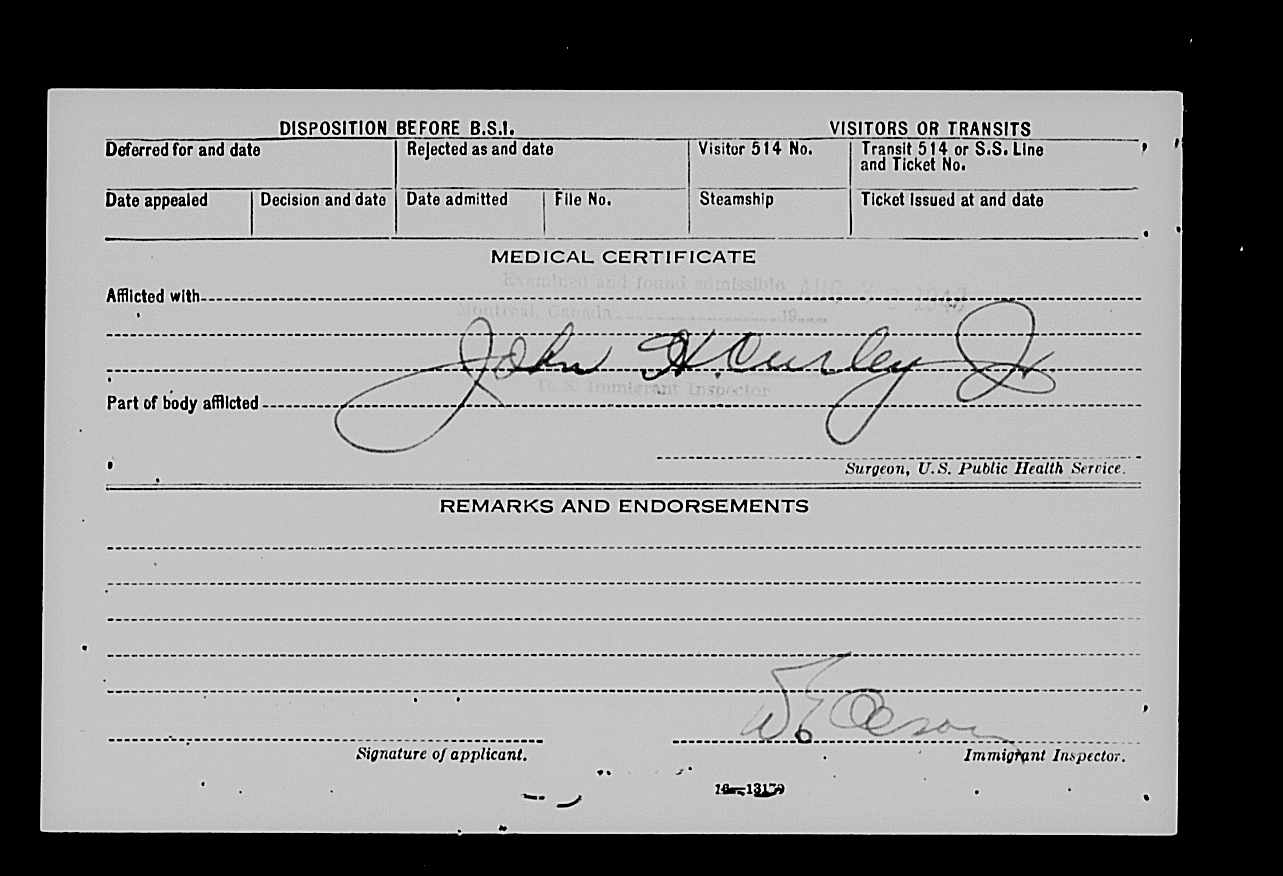 DISPOSITION BEFORE B.S.I. VISITORS OR TRANSITS
Deferred for and date Rejected as and date Visitor 514 No. Transit 514 or S.S. Line
and Ticket No.
Date appealed Decision and date Date admitted File No. Steamship Ticket issued at and date
MEDICAL CERTIFICATE
Examined and found admissible AUG
Afflicted with
Montreal, Canada 19
John H. Curley Jr
U. S. Immigrant Inspector
Part of body afflicted
Surgeon, U.S. Public Health Service.
REMARKS AND ENDORSEMENTS
Signature of applicant. Immigrant Inspector.